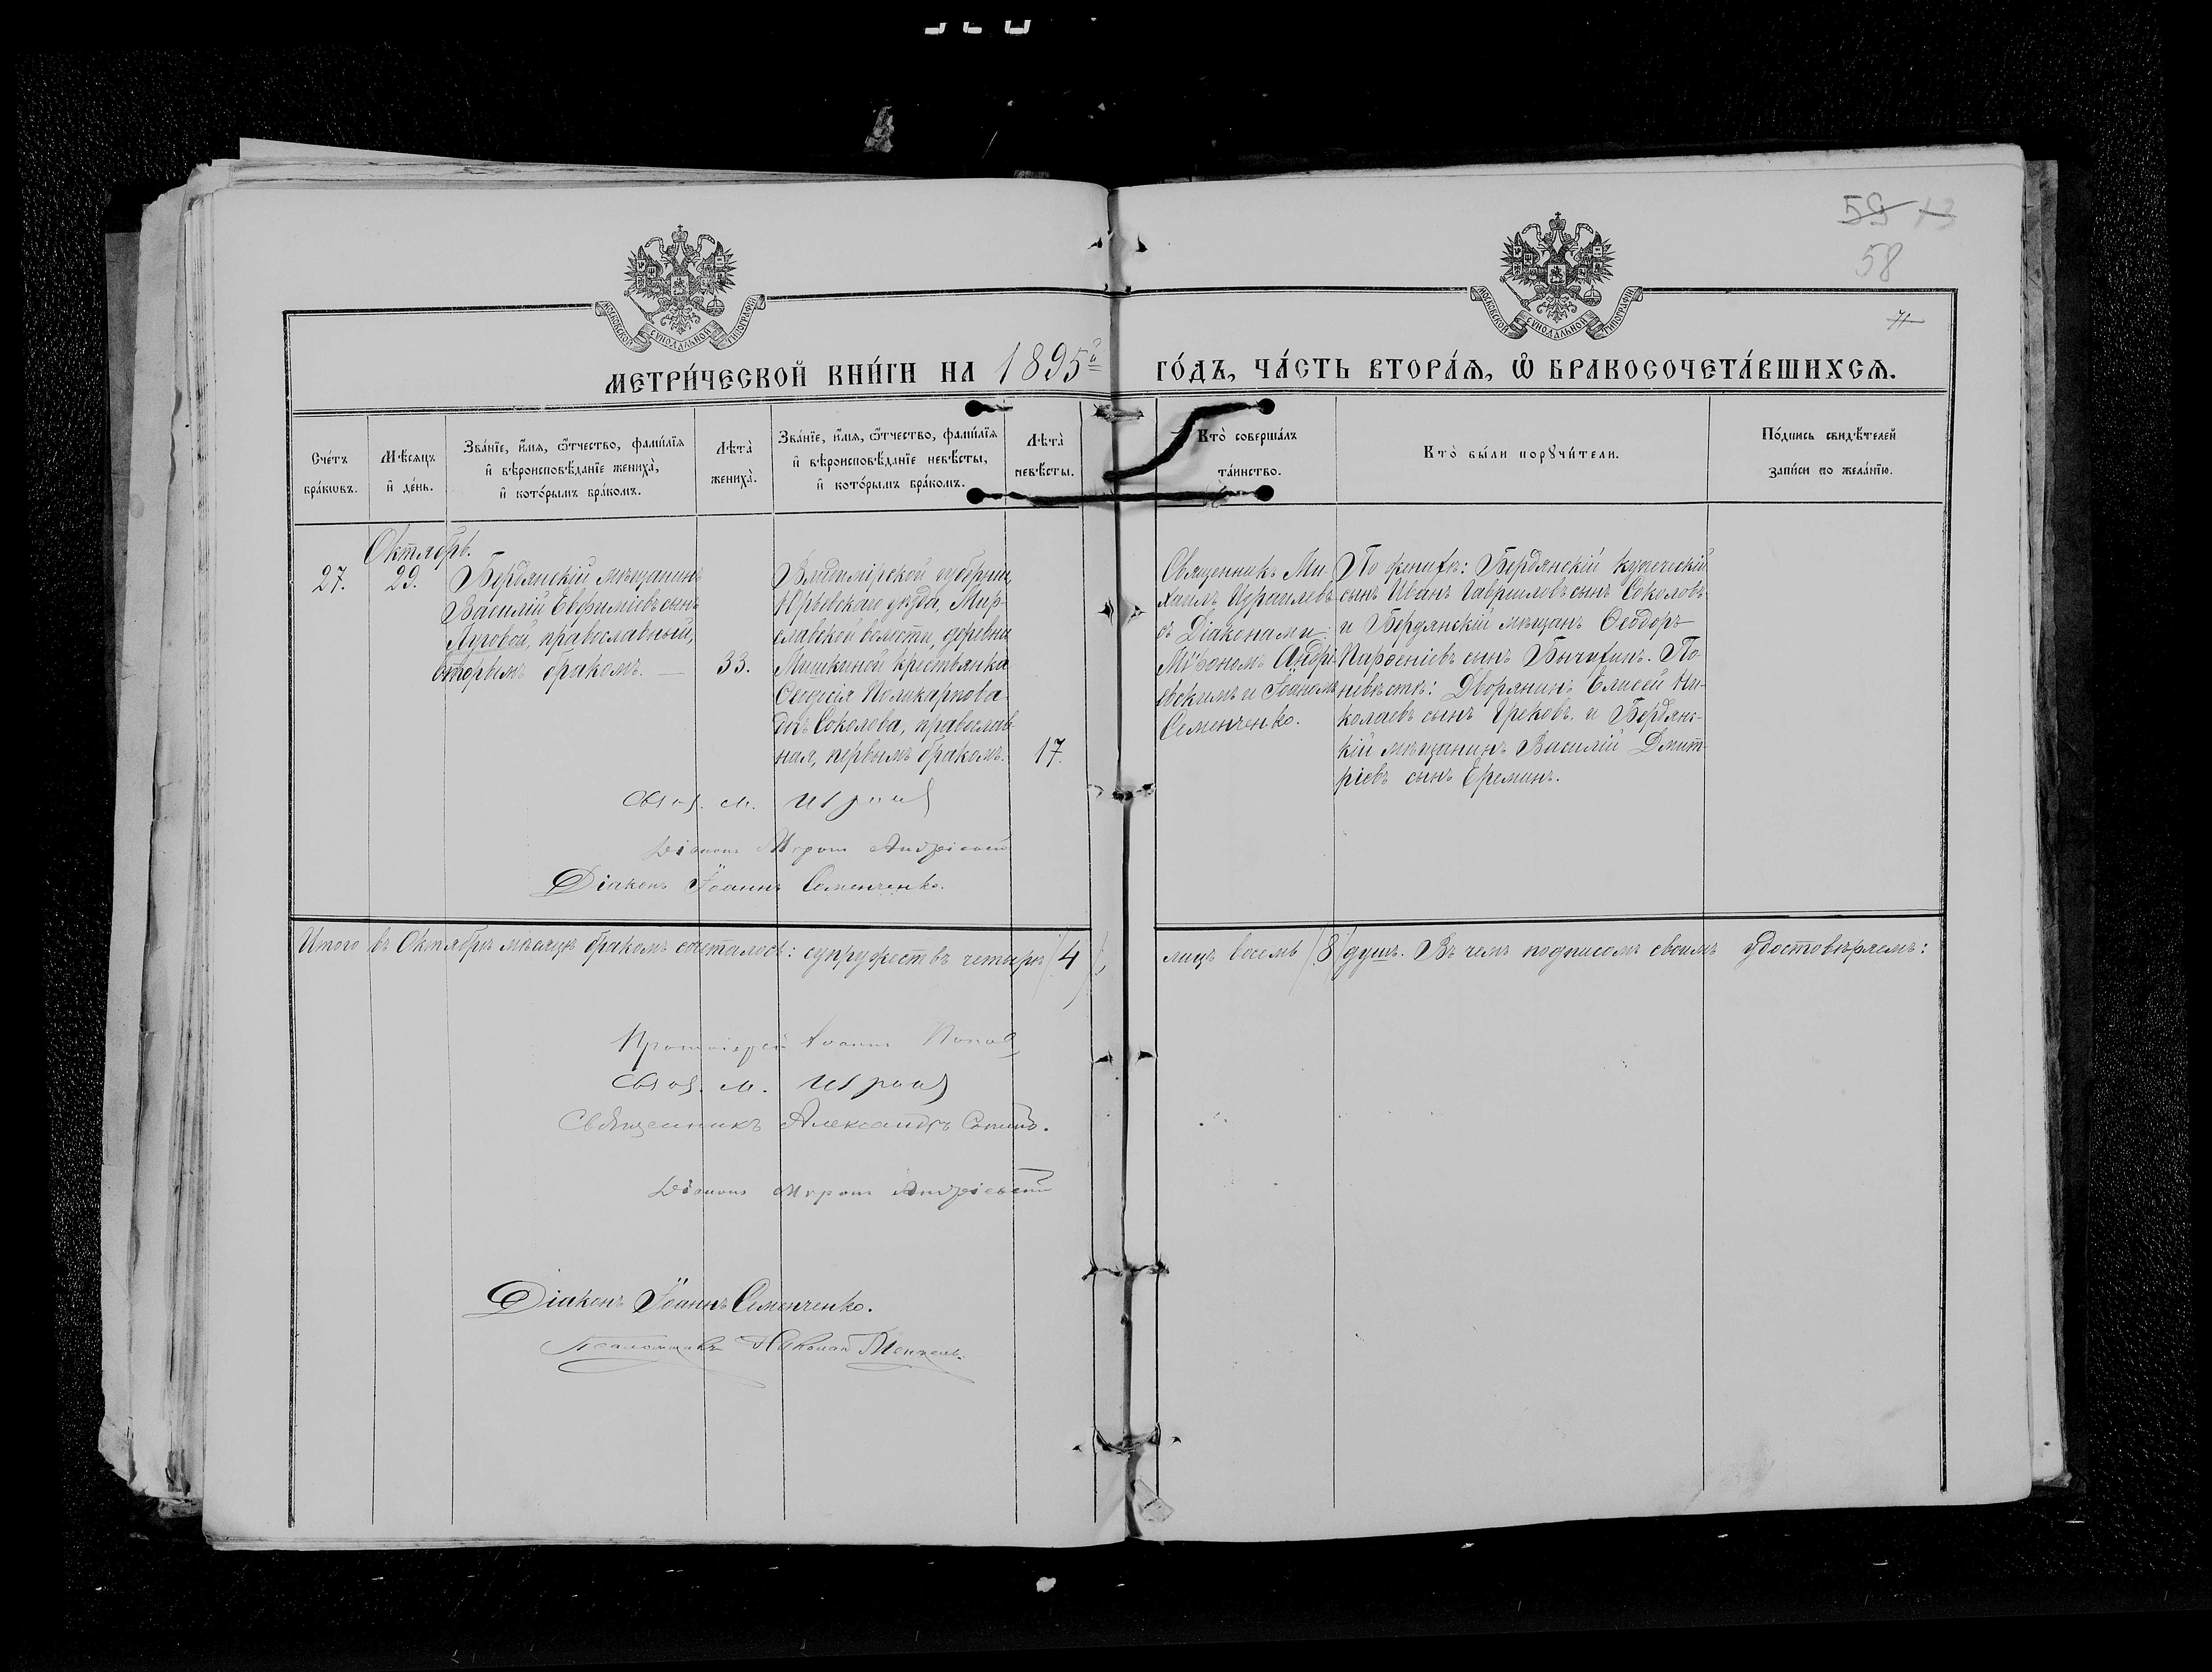 59 13
58
71
МОСКОВСКОЙ СѴНОДАЛЬНОЙ ТИПОГРАФІИ
МОСКОВСКОЙ СѴНОДАЛЬНОЙ ТИПОГРАФІИ
МЕТРИ́ЧЕСКОЙ КНИ́ГИ НА 1895й ГО́ДЪ, ЧА́СТЬ ВТОРА́Ѧ, Ѽ БРАКОСОЧЕТА́ВШИХСѦ.
Счéтъ
брáкѡвъ.
Мѣ́сяцъ
и҆ дéнь.
Звáнїе, и҆́мѧ, ѻ҆́тчество, фамѵ́лїѧ
и҆ вѣроисповѣ́данїе женихà,
и҆ котóрымъ брáкомъ.
Лѣ́та
женихà.
Звáнїе, и҆́мѧ, ѻ҆́тчество, фамѵ́лїѧ
и҆ вѣроисповѣ́данїе невѣ́сты,
и҆ котóрымъ брáкомъ.
Лѣ́та
невѣ́сты.
Ктò совершáлъ
тáинство.
Ктò бы́ли порꙋчи́тели.
Пóдпись свидѣ́телей
зáписи по желáнїю.
Октябрь.
27.
29.
Бердянскій мѣщанинъ
Василій Евфиміевъ сынъ
Луговой, православный,
вторымъ бракомъ. —
33.
Владимірской губерніи,
Юрьевскаго уѣзда, Мир-
славской волости, деревни
Мишкиной крестьянка
Ѳеодосія Поликарпова
дочь Соколова, православ-
ная, первымъ бракомъ.
17.
Священникъ Ми-
хаилъ Израилевъ
съ Діаконами:
Мѵрономъ Андрі-
евскимъ и Іоанномъ
Семенченко.
По женихѣ: Бердянскій купеческій
сынъ Иванъ Гавриловъ сынъ Соколовъ
и Бердянскій мѣщанъ Ѳеодоръ
Парѳеніевъ сынъ Бычихинъ. По
невѣстѣ: Дворянинъ Елисей Ни-
колаевъ сынъ Грековъ. и Бердянс-
кій мѣщанинъ Василій Дмит-
ріевъ сынъ Ереминъ.
Свящ. М. Израил
Діаконъ Мѵронъ Андріевскій
Діаконъ Іоаннъ Семенченко.
Итого въ Октябрѣ мѣсяцѣ бракомъ сочеталось: супружествъ четыре (4),
лицъ восемь (8) душъ. Въ чемъ подписомъ своимъ удостовѣряемъ:
Протоіерей Іоаннъ Попов
Свящ. М. Израил
Священникъ Александръ
Діаконъ Мѵронъ Андріевскій
Діаконъ Іоаннъ Семенченко.
Псаломщикъ Николай